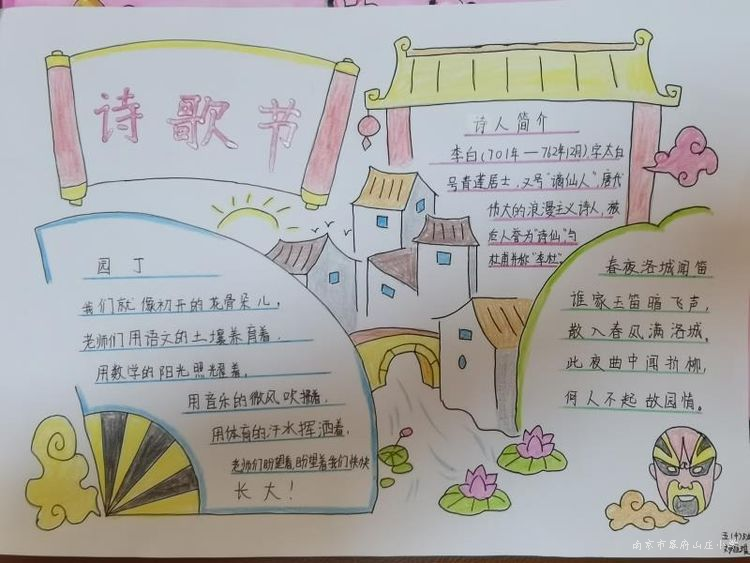 诗歌节
诗人简介
李白(701年—762年12月)字太白
号青莲居士，又号"谪仙人"，唐代
伟大的浪漫主义诗人，被
后人誉为"诗仙"与
杜甫并称"李杜"
园丁
我们就像初开的花骨朵儿，
老师们用语文的土壤养育着，
用数学的阳光照耀着，
用音乐的微风吹拂着，
用体育的汗水挥洒着，
老师们盼望着，盼望着我们快快
长大！
春夜洛城闻笛
谁家玉笛暗飞声，
散入春风满洛城。
此夜曲中闻折柳，
何人不起故园情。
南京市幕府山庄小学